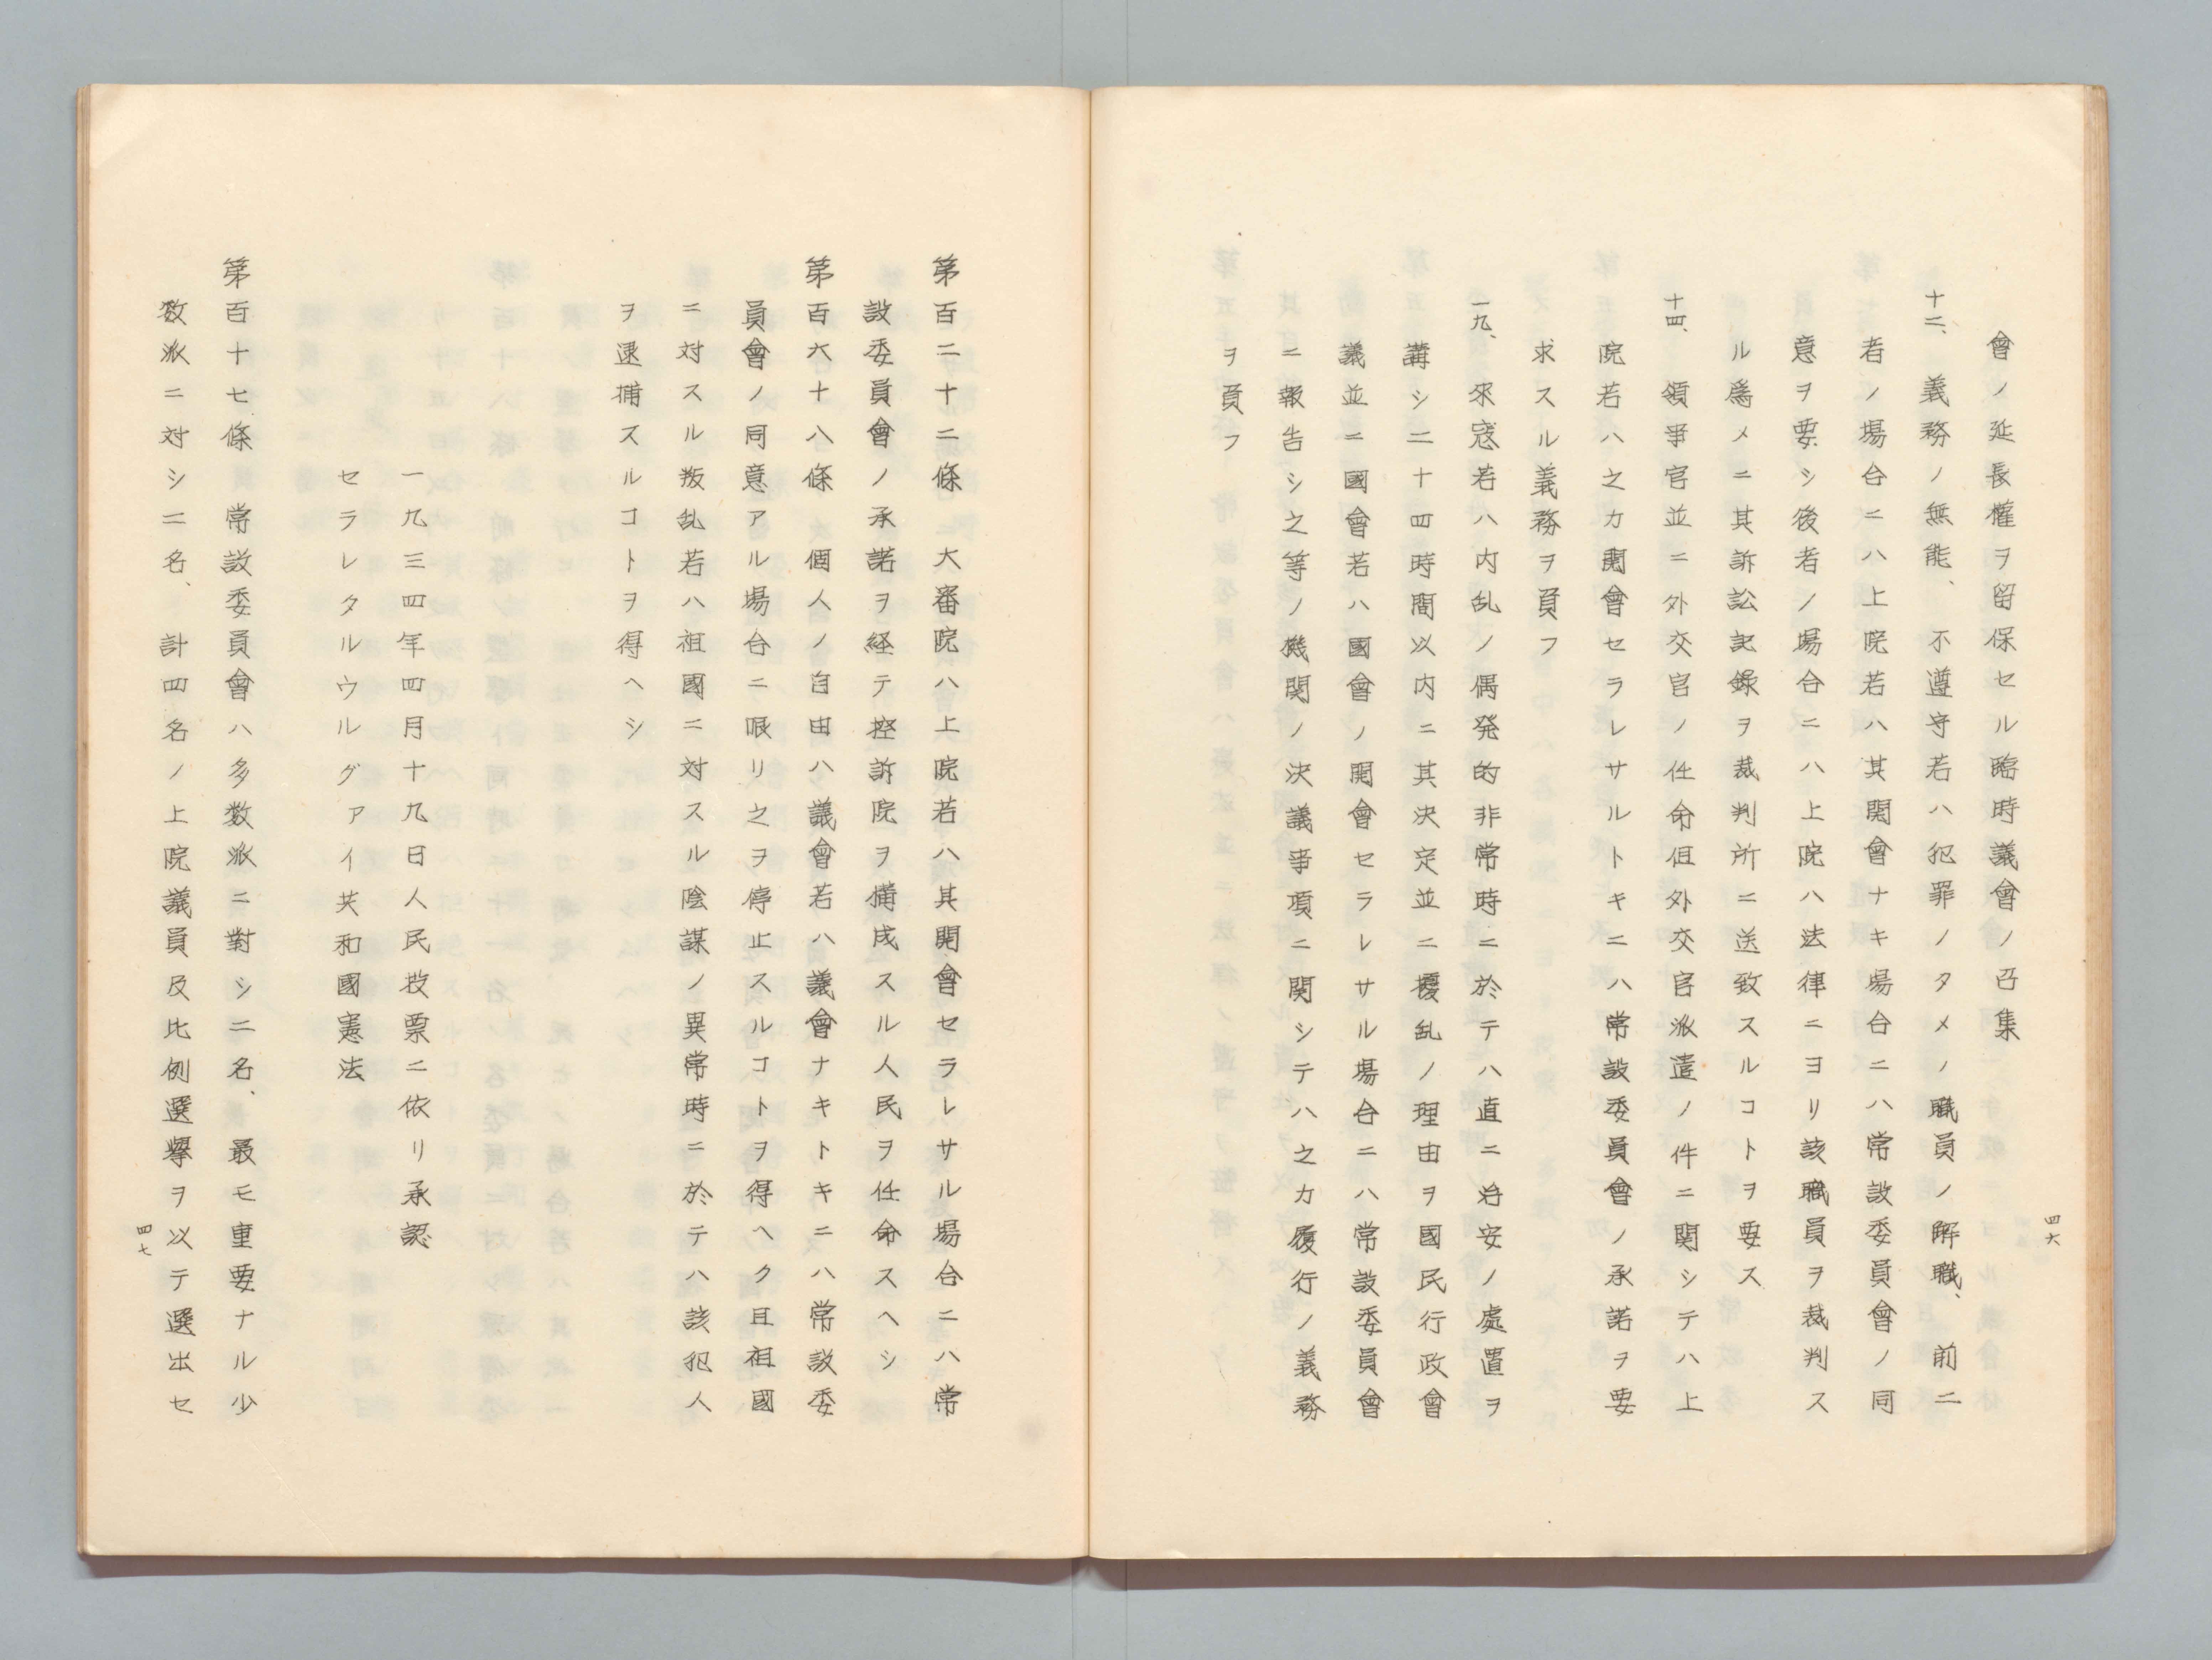 會ノ延長權ヲ留保セル臨時議會ノ召集
十二、義務ノ無能、不遵守若ハ犯罪ノタメノ職員ノ解職、前二
者ノ場合ニハ上院若ハ其開會ナキ場合ニハ常設委員會ノ同
意ヲ要シ後者ノ場合ニハ上院ハ法律ニヨリ該職員ヲ裁判ス
ル爲メニ其訴訟記録ヲ裁判所ニ送致スルコトヲ要ス
十四、領事官並ニ外交官ノ任命但外交官派遣ノ件ニ関シテハ上
院若ハ之カ開會セラレサルトキニハ常設委員會ノ承諾ヲ要
求スル義務ヲ負フ
一九、來寇若ハ内乱ノ偶発的非常時ニ於テハ直ニ治安ノ處置ヲ
講シ二十四時間以内ニ其決定並ニ擾乱ノ理由ヲ國民行政會
議並ニ國會若ハ國會ノ開會セラレサル場合ニハ常設委員會
ニ報告シ之等ノ機関ノ決議事項ニ関シテハ之カ履行ノ義務
ヲ負フ
四六
第百二十二條 大審院ハ上院若ハ其開會セラレサル場合ニハ常
設委員會ノ承諾ヲ経テ控訴院ヲ構成スル人民ヲ任命スヘシ
第百六十八條 個人ノ自由ハ議會若ハ議會ナキトキニハ常設委
員會ノ同意アル場合ニ限リ之ヲ停止スルコトヲ得ヘク且祖國
ニ対スル叛乱若ハ祖國ニ対スル陰謀ノ異常時ニ於テハ該犯人
ヲ逮捕スルコトヲ得ヘシ
一九三四年四月十九日人民投票ニ依リ承認
セラレタルウルグァイ共和國憲法
第百十七條 常設委員會ハ多数派ニ對シ二名、最モ重要ナル少
数派ニ対シ二名、計四名ノ上院議員及比例選擧ヲ以テ選出セ
四七